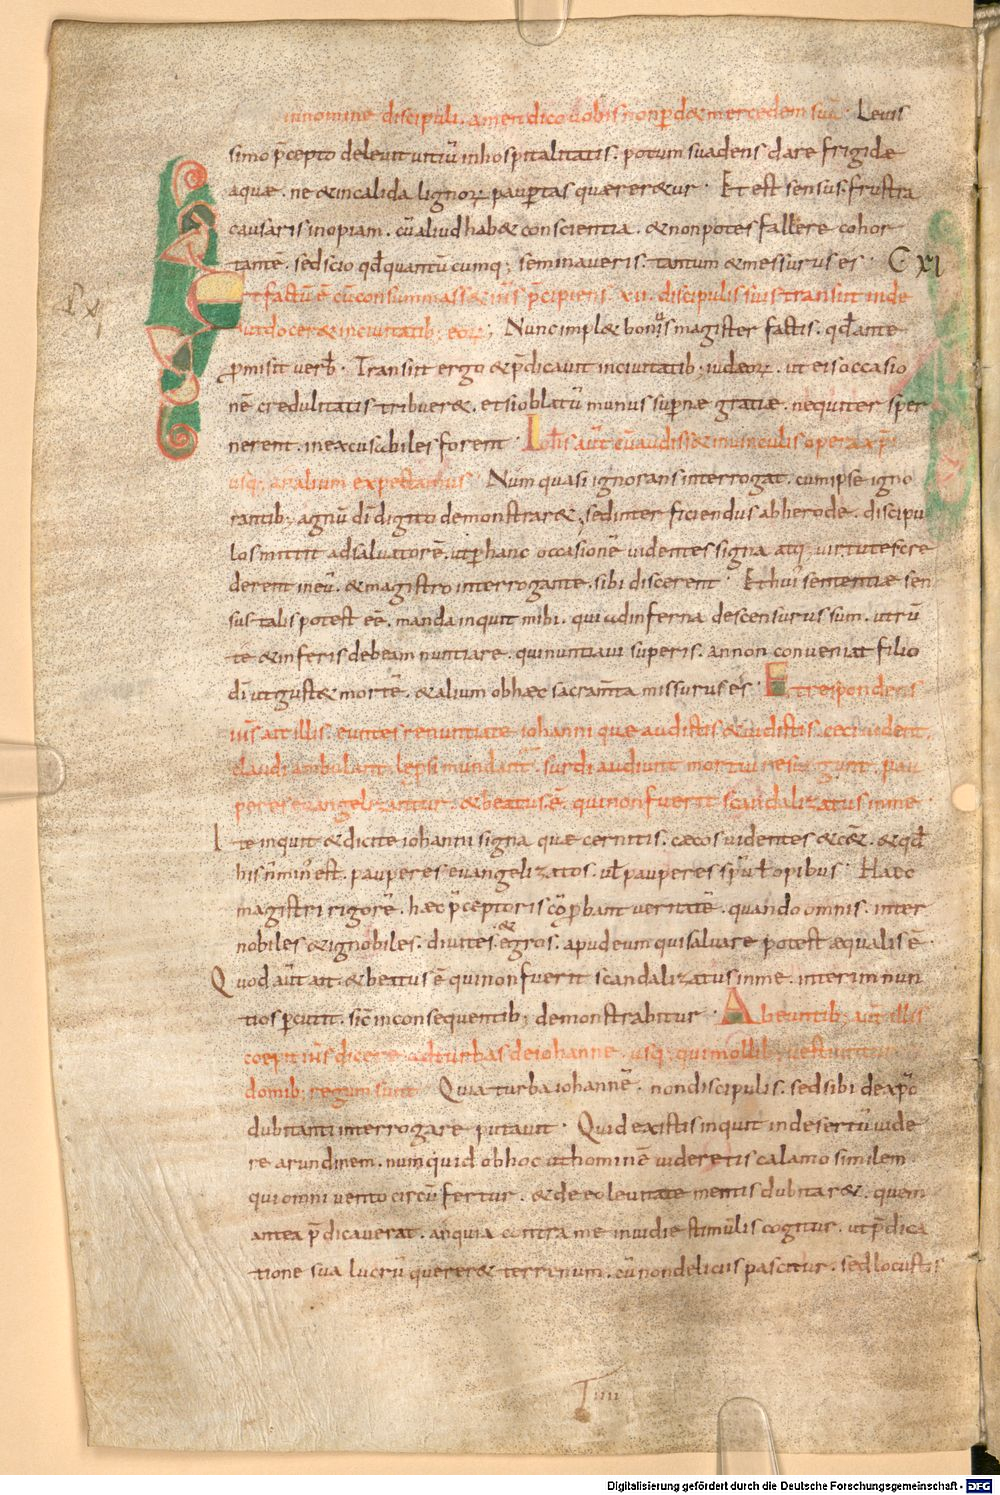 in nomine discipuli. amen dico vobis non ꝑd&mercedem suā. Levis
simo p̄cepto delevit vitiū inhospitalitatis. potum suadens dare frigidæ
aquæ. ne & in calida lignoꝝ pauꝑtas quærer&ur. Et est sensus. frustra
causaris inopiam. cū aliud hab& conscientia. & non potes fallere cohor
tantē. sed scio qd̄ quantū cumq; seminaveris. tantum & messurus es. C XI
LXI
Et factū ē cū consummass& ihs p̄cipiens. xii. discipulis suis transiit inde
ut docer& in civitatib; eoꝝ; Nunc impl& bonus magister factis. qd̄ ante
ꝓmisit verb. Transiit ergo & p̄dicavit in civitatib; iudæoꝝ. ut eis occasio
nē credulitatis tribuer&. et si oblatū munus suꝑnæ gratiæ. nequiter sper
nerent. inexcusabiles forent. Iohis aūt cū audiss& in vinculis opera xp̄i
usq; an alium expectamus. Num quasi ignorans interrogat. cum ipse igno
rantib; agnū dī digito demonstrar&. sed interficiendus ab herode. discipu
los mittit ad salvatorē. ut ꝑ hanc occasionē videntes signa atq; virtutes cre
derent in eū. & magistro interrogante. sibi discerent. Et hui' sententiæ sen
sus talis potest eē. manda inquit mihi. qui ad inferna descensurus sum. utrū
te & inferis debeam nuntiare. qui nuntiavi superis. an non conveniat filio
dī ut gust& mortē. & alium ob hæc sacram̄ta missurus es. Et respondens
ihs ait illis. euntes renuntiate iohanni quæ audistis & vidistis. ceci vident.
claudi ambulant. leprosi mundant. surdi audiunt mortui resurgunt. pau
peres evangelizantur. & beatus ē. qui non fuerit scandalizatus in me.
Ite inquit & dicite iohanni signa quæ cernitis. cæcos videntes & cæ&. & qd̄
his n̄ min' est. pauperes evangelizatos. vel pauperes spū vel opibus. Hæc
magistri rigorē. hæc p̄ceptoris cōꝓbant veritatē. quando omnis. inter
nobiles & ignobiles. divites & egros. apud eum qui salvare potest æqualis ē.
Quod aūt ait. & beatus ē qui non fuerit scandalizatus in me. interim nun
tios ꝑcutit. sic̄ in consequentib; demonstrabitur. Abeuntib; aūt illis
coepit ihs dicere ad turbas de iohanne. usq; qui mollib; vestiuntur in
domib; regum sunt. Quia turba iohannē. non discipulis. sed sibi de xp̄o
dubitanti interrogare putavit. Quid existis inquit in desertū vide
re arundinem. numquid ob hoc ut hominē videretis calamo similem
qui omni vento circūfertur. & de eo levitate mentis dubitar&. quem
antea p̄dicaverat. an quia contra me invidie stimulis cogitur. ut p̄dica
tione sua lucrū querer& terrenum. cū non delicus pascitur. sed locustis
IIII
Digitalisierung gefördert durch die Deutsche Forschungsgemeinschaft - DFG